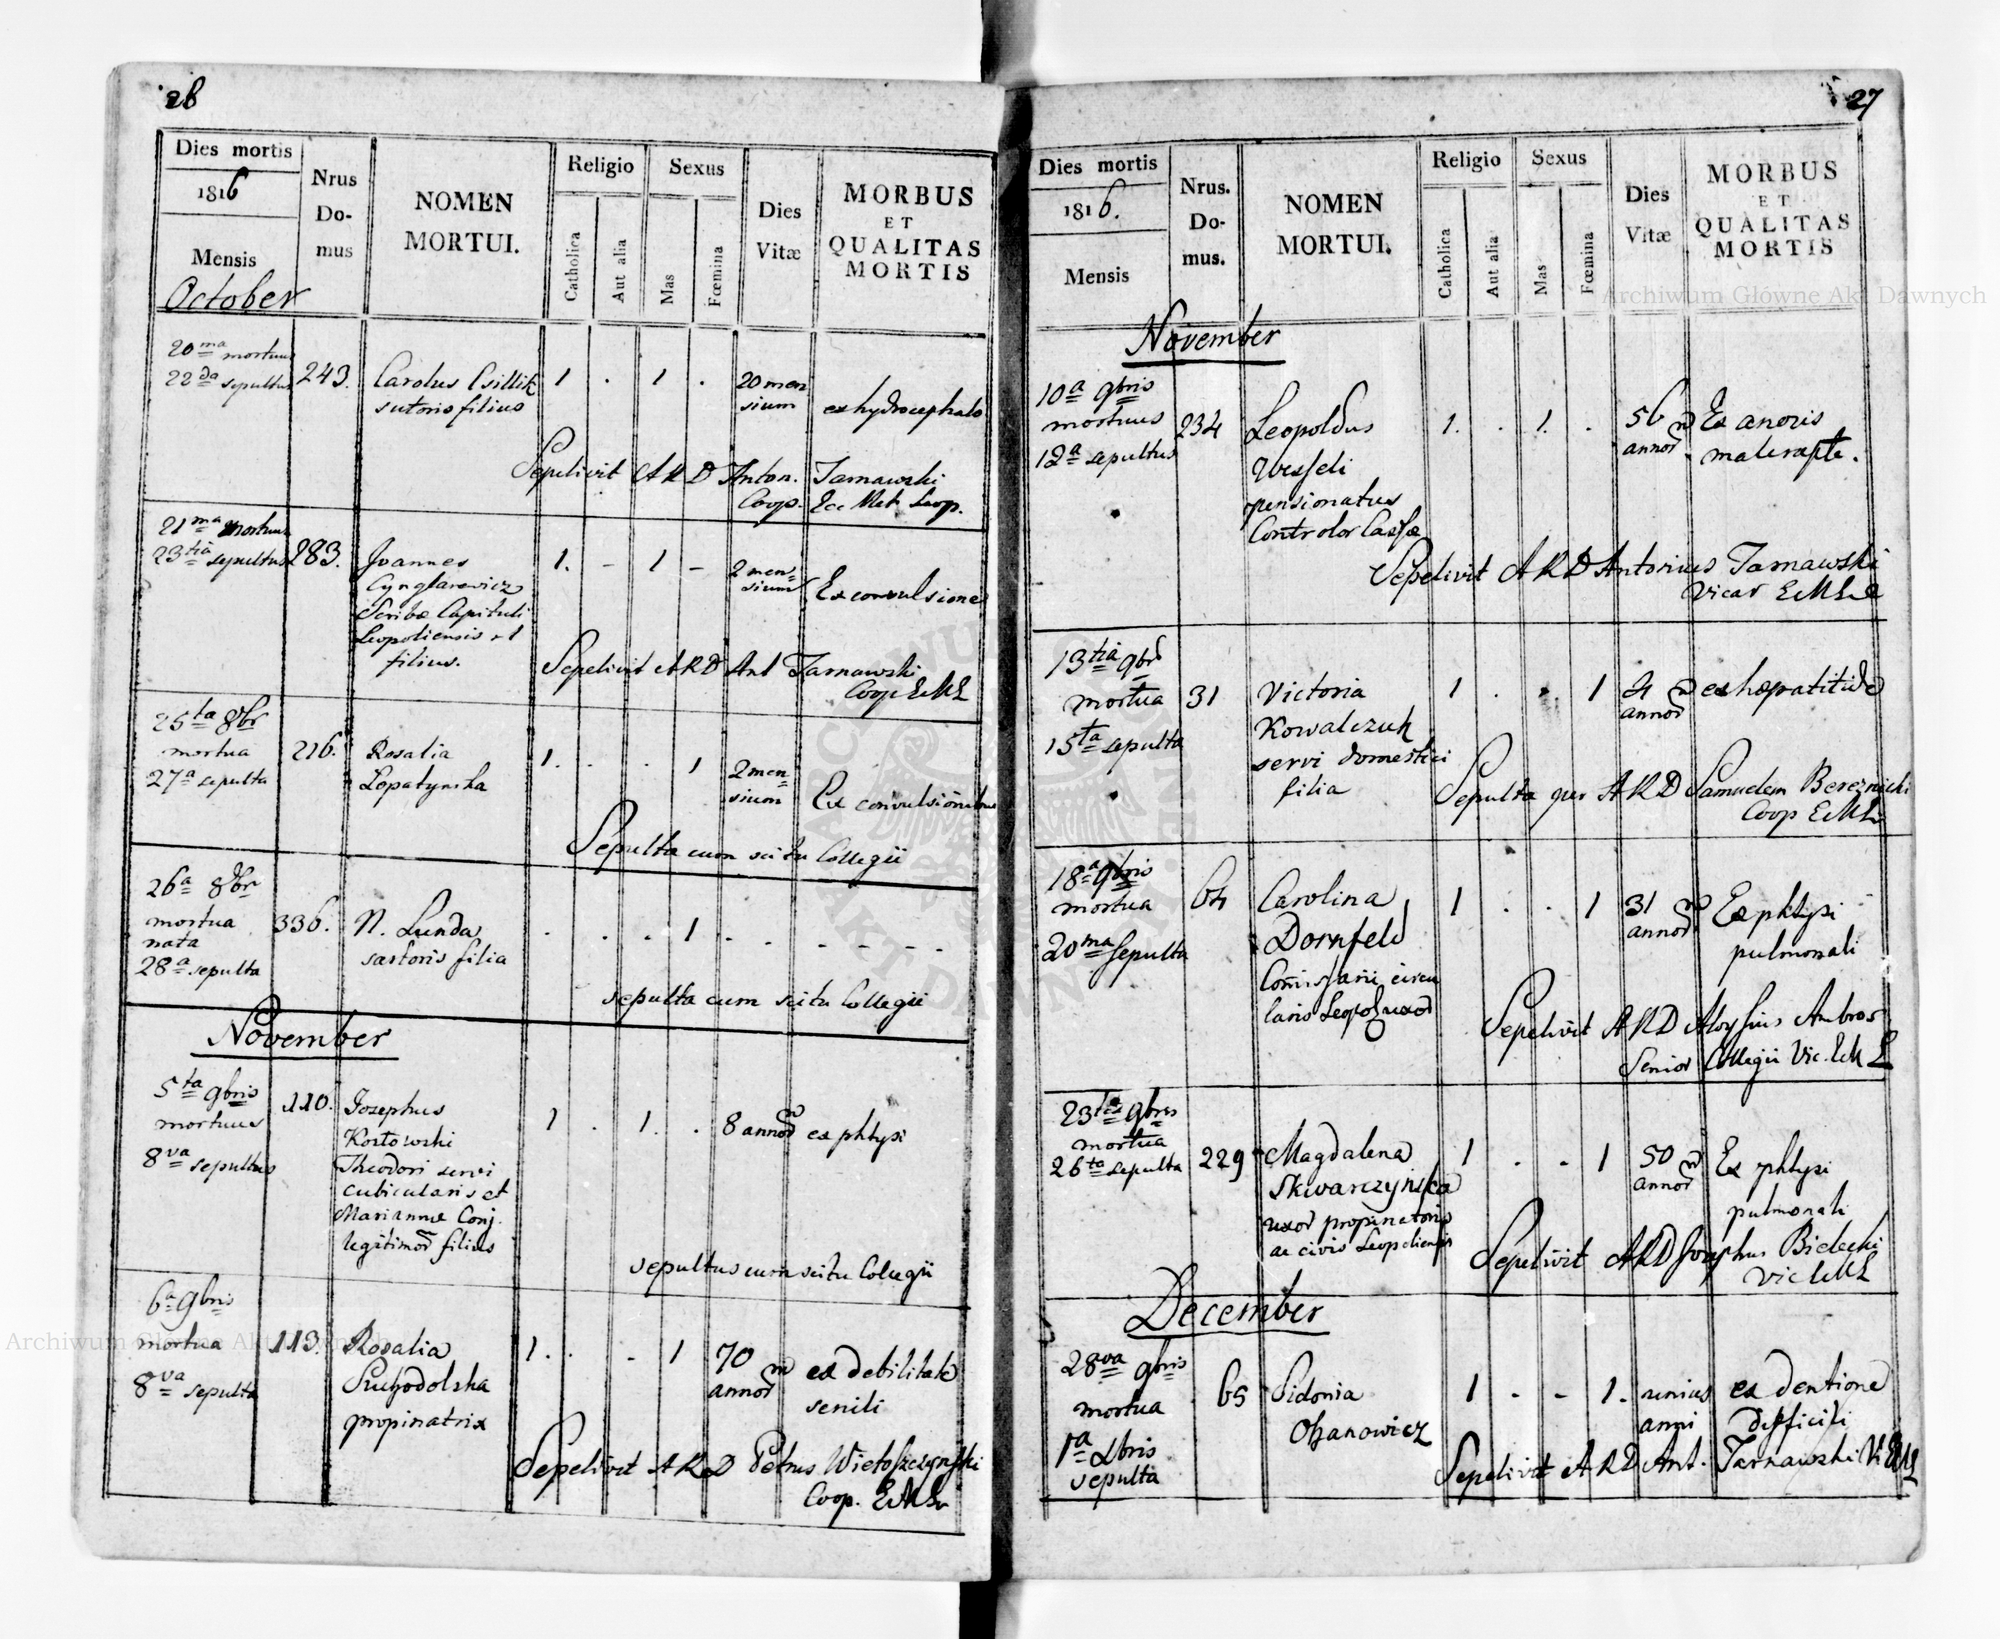 26
Dies mortis
1816
Mensis
October
Nrus
Do-
mus
NOMEN
MORTUI.
Religio
Catholica
Aut alia
Sexus
Mas
Fœmina
Dies
Vitæ
MORBUS
ET
QUALITAS
MORTIS
20ma mortuus
22da sepultus
243.
Carolus Csillik
sutoris filius
1 . 1 .
20 men
sium
ex hydrocephalo
Sepelivit ARD Anton. Tarnawski
Coop. Ec Met Leop.
21ma mortuus
23tia sepultus
283.
Joannes
Scribæ Capituli
Leopoliensis
filius.
1. - 1 -
2 men=
sium
Ex convulsione
Sepelivit ARD Ant Tarnawski
Coop EML
25ta 8br
mortua
27a sepulta
216.
Rosalia
Lopatynska
1. . . 1
2 men=
sium
Ex convulsionibus
Sepulta cum scitu Collegii
26a 8br
mortua
nata
28a sepulta
336.
N. Lunda
sartoris filia
. . . 1 - - - - - -
sepulta cum scitu Collegii
November
5ta 9bris
mortuus
8va sepultus
110.
Josephus
Kozlowski
Theodori servi
cubicularis et
Mariannæ Conj.
legitimor filius
1 . 1. .
8 annor
ex phtysi
sepultus cum scitu Collegii
6a 9bris
mortua
8va sepulta
113.
Rosalia
Suchodolska
propinatrix
1. . - 1
70
annor
ex debilitate
senili
Sepelivit ARD Petrus Wietoszczynski
Coop. EMLe
27
Dies mortis
1816.
Mensis
Nrus.
Do-
mus.
NOMEN
MORTUI.
Religio
Catholica
Aut alia
Sexus
Mas
Fœmina
Dies
Vitæ
MORBUS
ET
QUALITAS
MORTIS
November
10a 9bris
mortuus
12a sepultus
234
Leopoldus
Wesseli
pensionatus
Controlor Cassæ
1. . 1. .
56
annor
Ex
Sepelivit ARD Antonius Tarnawski
Vicar EMLe
13tia 9br
mortua
15ta sepulta
31
Victoria
Kowalczuk
servi domestici
filia
1 . . 1
annor
ex hepatitide
Sepulta per ARD Samuelem Bereznicki
Coop EMLe
18a 9bris
mortua
20ma sepulta
64
Carolina
Dornfeld
Comissarii circu
laris Leopol uxor
1 . . 1
31
annor
Ex phtysi
pulmonali
Sepelivit ARD Aloysius Ambros
Senior Collegii Vic. EM L
23tia 9bris
mortua
26ta sepulta
229
Magdalena
Skwarczynska
uxor propinatoris
ac civis Leopoliensis
1 . - 1
50
annor
Ex phtysi
pulmonali
Sepelivit ARD Josephus Bielecki
Vic EML
December
28va 9bris
mortua
1a Xbris
sepulta
65
Sidonia
Ohanowicz
1 - - 1.
unius
anni
ex dentione
difficili
Sepelivit ARD Ant. Tarnawski V EML
Archiwum Główne Akt Dawnych
Archiwum Główne Akt Dawnych
ARCHIWUM GŁÓWNE AKT DAWNYCH